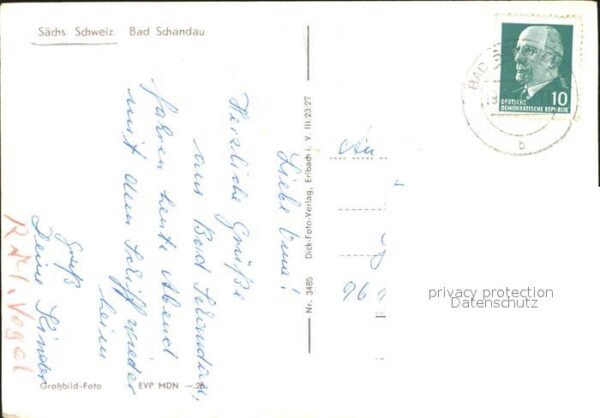 Sächs. Schweiz. Bad Schandau
DEUTSCHE
DEMOKRATISCHE REPUBLIK
10
BAD
b
Liebe
Herzliche Grüße
aus Bad Schandau,
fahren heute Abend
mit dem Schiff wieder
heim
Gruß
Deine Kinder
An
96
Nr. 3485 Dick-Foto-Verlag, Erlbach i. V. III/23/27
Großbild-Foto EVP MDN —.20
privacy protection
Datenschutz